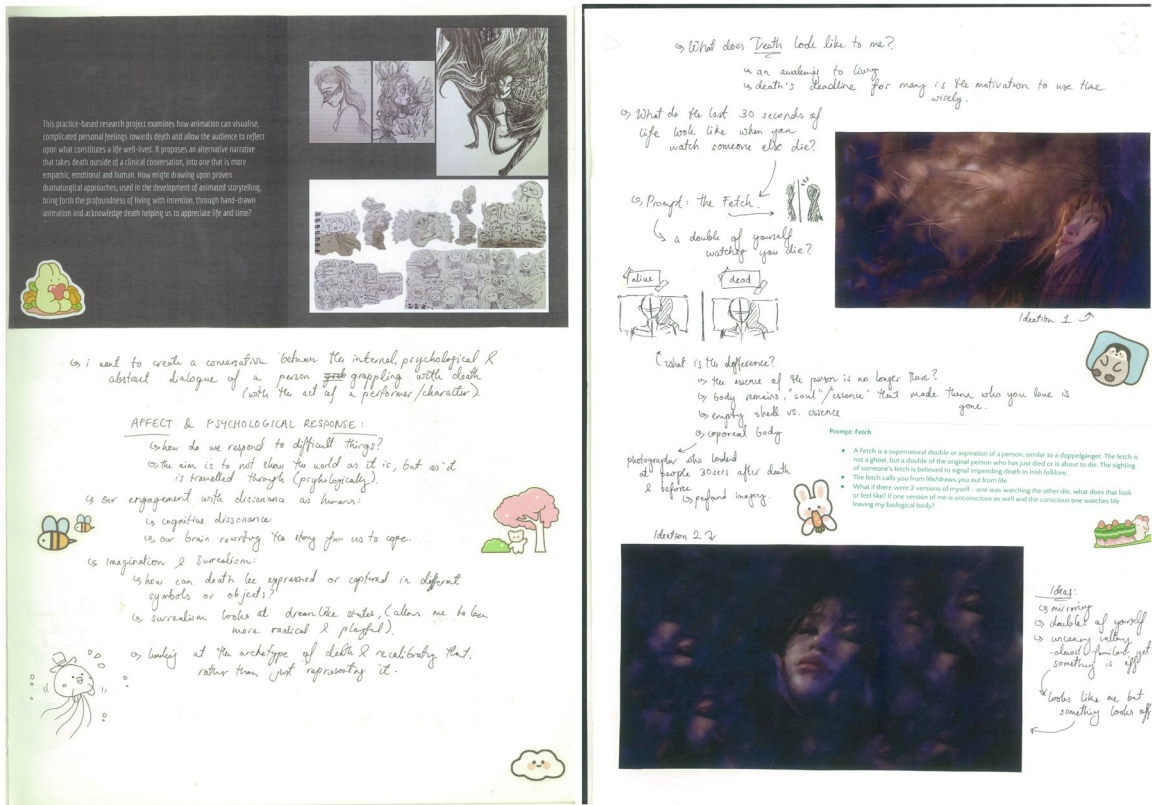 This practice-based research project examines how animation can visualise,
complicated personal feelings towards death and allow the audience to reflect
upon what constitutes a life well-lived. It proposes an alternative narrative
that takes death outside of a clinical conversation, into one that is more
empathic, emotional and human. How might drawing upon proven
dramaturgical approaches, used in the development of animated storytelling,
bring forth the profoundness of living with intention, through hand-drawn
animation and acknowledge death helping us to appreciate life and time?
i want to create a conversation between the internal, psychological &
abstract dialogue of a person grappling with death
(with the act of a performer/character).
AFFECT & PSYCHOLOGICAL RESPONSE:
how do we respond to difficult things?
the aim is to not show the world as it is, but as it
is travelled through (psychologically).
Our engagement with dissonance as humans:
cognitive dissonance.
our brain rewriting the story for us to cope.
Imagination & Surrealism:
how can death be expressed or captured in different
symbols or objects?
surrealism looks at dreamlike states, (allows me to be
more radical & playful).
looking at the archetype of death & recalibrating that.
rather than just representing it.
What does Death look like to me?
an awakening to living
death's deadline for many is the motivation to use time
wisely.
What do the last 30 seconds of
life look like when you
watch someone else die?
Prompt: the Fetch.
a double of yourself
watching you die?
alive
dead
Ideation 1
what is the difference?
the essence of the person is no longer there?
body remains, "soul"/"essence" that made them who you love is
gone.
empty shell vs. essence
coporeal body
photographer who looked
at people 30secs after death
& before
profound imagery.
Prompt: Fetch
• A Fetch is a supernatural double or aspiration of a person, similar to a doppelgänger. The fetch is
not a ghost, but a double of the original person who has just died or is about to die. The sighting
of someone's fetch is believed to signal impending death in Irish folklore.
• The fetch calls you from life/draws you out from life.
• What if there were 2 versions of myself – one was watching the other die. what does that look
or feel like? If one version of me is unconscious as well and the conscious one watches life
leaving my biological body?
Ideation 2
Ideas:
mirroring
doubles of yourself
uncanny valley
-almost familiar yet
something is off
looks like me but
something looks off